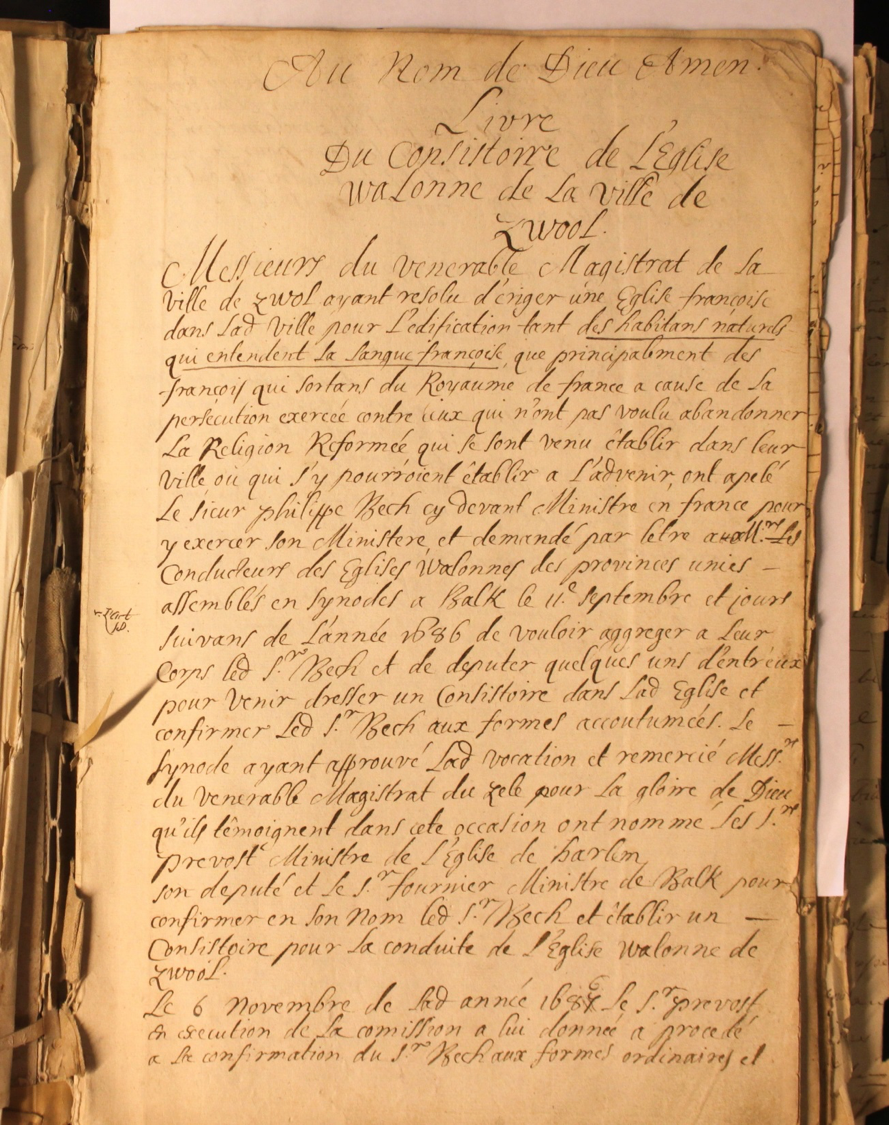 Au Nom de Dieu Amen.
Livre
Du Consistoire de L'Eglise
Walonne de La Ville de
Zwool.
Messieurs du venerable Magistrat de La
Ville de Zwol ayant resolu d'eriger une Eglise françoise
dans Lad Ville pour L'edification tant des habitans naturels
qui entendent La Langue françoise, que principalement des
françois qui sortans du Royaume de france a cause de La
persecution exercée contre ceux qui n'ont pas voulu abandonner
La Religion Reformée qui se sont venu établir dans leur
Ville ou qui s'y pourroient établir a L'advenir, ont apelé
Le sieur philippe Bech cy devant Ministre en france pour
y exercer son Ministere, et demandé par letre Mrs. Les
Conducteurs des Eglises Walonnes des provinces unies –
assemblés en synodes a Balk le 11e septembre et jours
suivans de L'année 1686 de vouloir aggreger a Leur
Corps led Sr Bech et de deputer quelques uns d'entr'eux
pour venir dresser un Consistoire dans Lad Eglise et
confirmer Led Sr Bech aux formes accoutumées. Le –
synode ayant approuvé Lad vocation et remercié Messrs
du venerable Magistrat du zele pour La gloire de Dieu
qu'ils témoignent dans cete occasion ont nommé Les Srs
Prevost Ministre de L'Eglise de harlem
son deputé et Le Sr fournier Ministre de Balk pour
confirmer en son Nom led Sr Bech et établir un –
Consistoire pour La conduite de L'Eglise Walonne de
Zwool.
Le 6 Novembre de Lad année 1686 Le Sr prevost
en execution de La comission a lui donnée a procedé
a La confirmation du Sr Bech aux formes ordinaires et